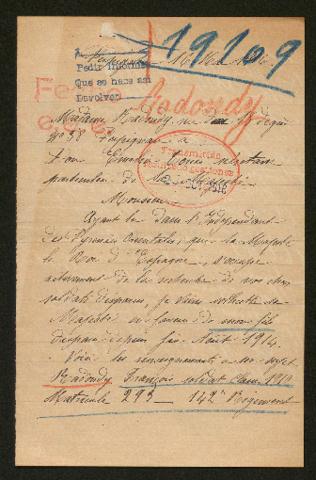 19109
A
Pedir informe
Que se hace así
Devolver
Radondy
Madame Radondy rue
N° 38 Perpignan à
Son Emilio Torres secrétaire
particulier de Sa Majesté
Monsieur
Ayant lu dans l'Indépendant
des Pyrénées Orientales, que Sa Majesté
le Roi d'Espagne, s'occupe
activement de la recherche de nos chers
soldats disparus, je viens solliciter Sa
Majesté en faveur de mon fils
disparu depuis fin Août 1914.
Voici les renseignements à son sujet
Radondy François soldat classe 1910
Matricule 293 — 142e Régiment